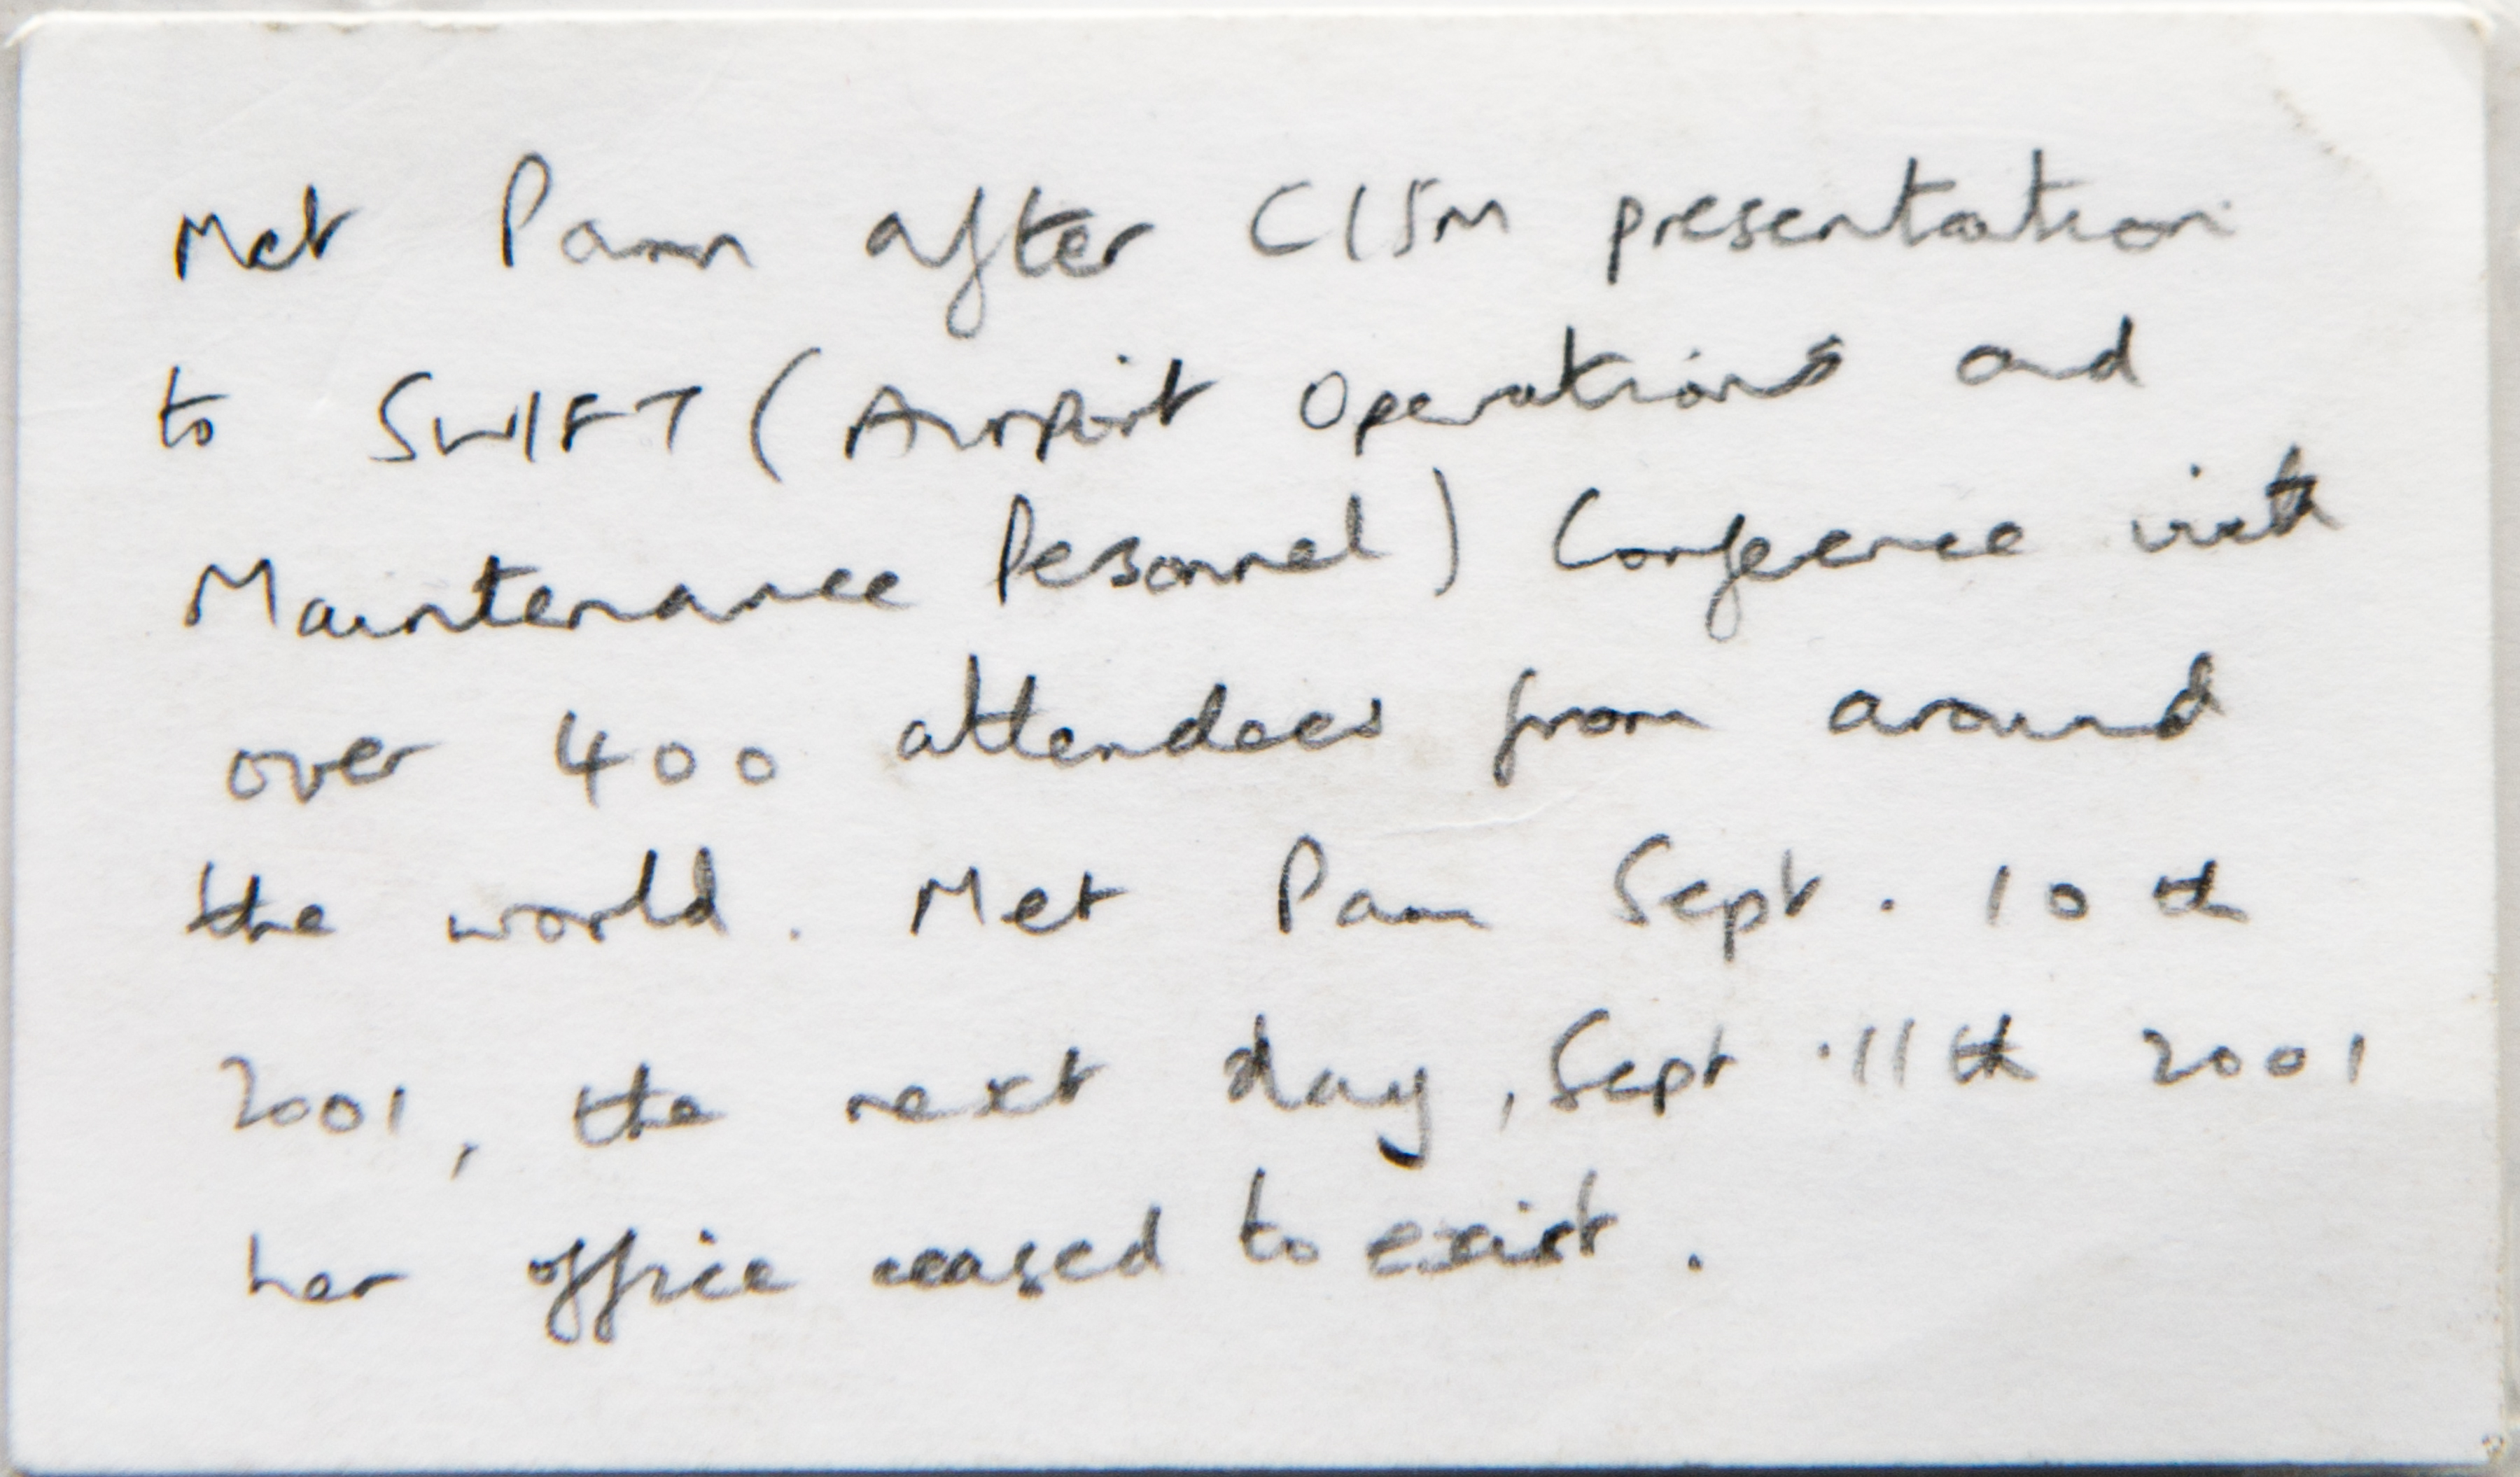 Met Pam after CISM presentation
to SWIFT (Airport Operations and
Maintenance Pesonnel) Conference with
over 400 attendees from around
the world. Met Pam Sept. 10th
2001, the next day, Sept. 11th 2001
her office ceased to exist.